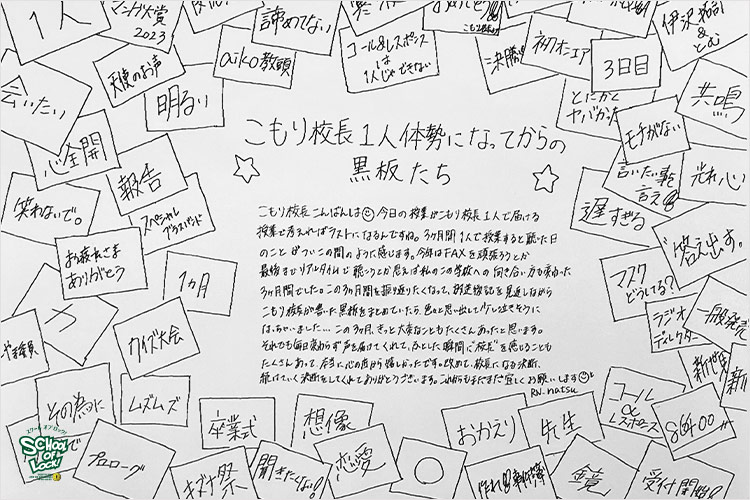 1人
大賞
2023
天使のお声
諦めてない
aiko教頭
コール&レスポンス
は
1人じゃできない
初オンエア
3日目
伊沢拓司
&
とおい
会いたい
明るい
とにかく
ヤバかった
共鳴
心全開
報告
モチがない
言いたい事を
言える
光れ心
笑わないで。
スペシャル
ブラスバンド
遅すぎる
答え出す。
お疲れさま
ありがとう
1ヵ月
マスク
どうしてる?
こもり校長1人体勢になってからの
黒板たち
こもり校長こんばんは 今日の授業がこもり校長1人で届ける
授業で考えればラストになるんですね。3ヶ月間1人で授業すると聴いた日
のことがついこの間のように感じます。今年はFAXを頑張ろうとか
最後までリアルタイムで聴こうとか思えば私のこの学校への向き合い方も変わった
3ヶ月間でした。この3ヶ月間を振り返りたくなって、放送後記を見返しながら
こもり校長が書いた黒板をまとめていたら、色々と思い出して少し泣きそうに
はっちゃいました…この3ヶ月、きっと大変なこともたくさんあったと思います。
それでも毎日変わらず声を届けてくれて、ふとした瞬間に"校長"を感じることも
たくさんあって、本当に心の底から嬉しかったです。改めて、校長になる決断、
続けていく決断をしてくれてありがとうございます。これからもまだまだ宜しくお願いします
RN.natsu
カ
クイズ大会
ラジオ
ディレクター
一般発売
その為に
ムズムズ
卒業式
想像
おかえり
先生
コール
&
レスポンス
プロローグ
キズナ祭
聞きたくない!
恋愛
〇
受付開始!
スクール オブ ロック!
SCHOOL
OF
LOCK!